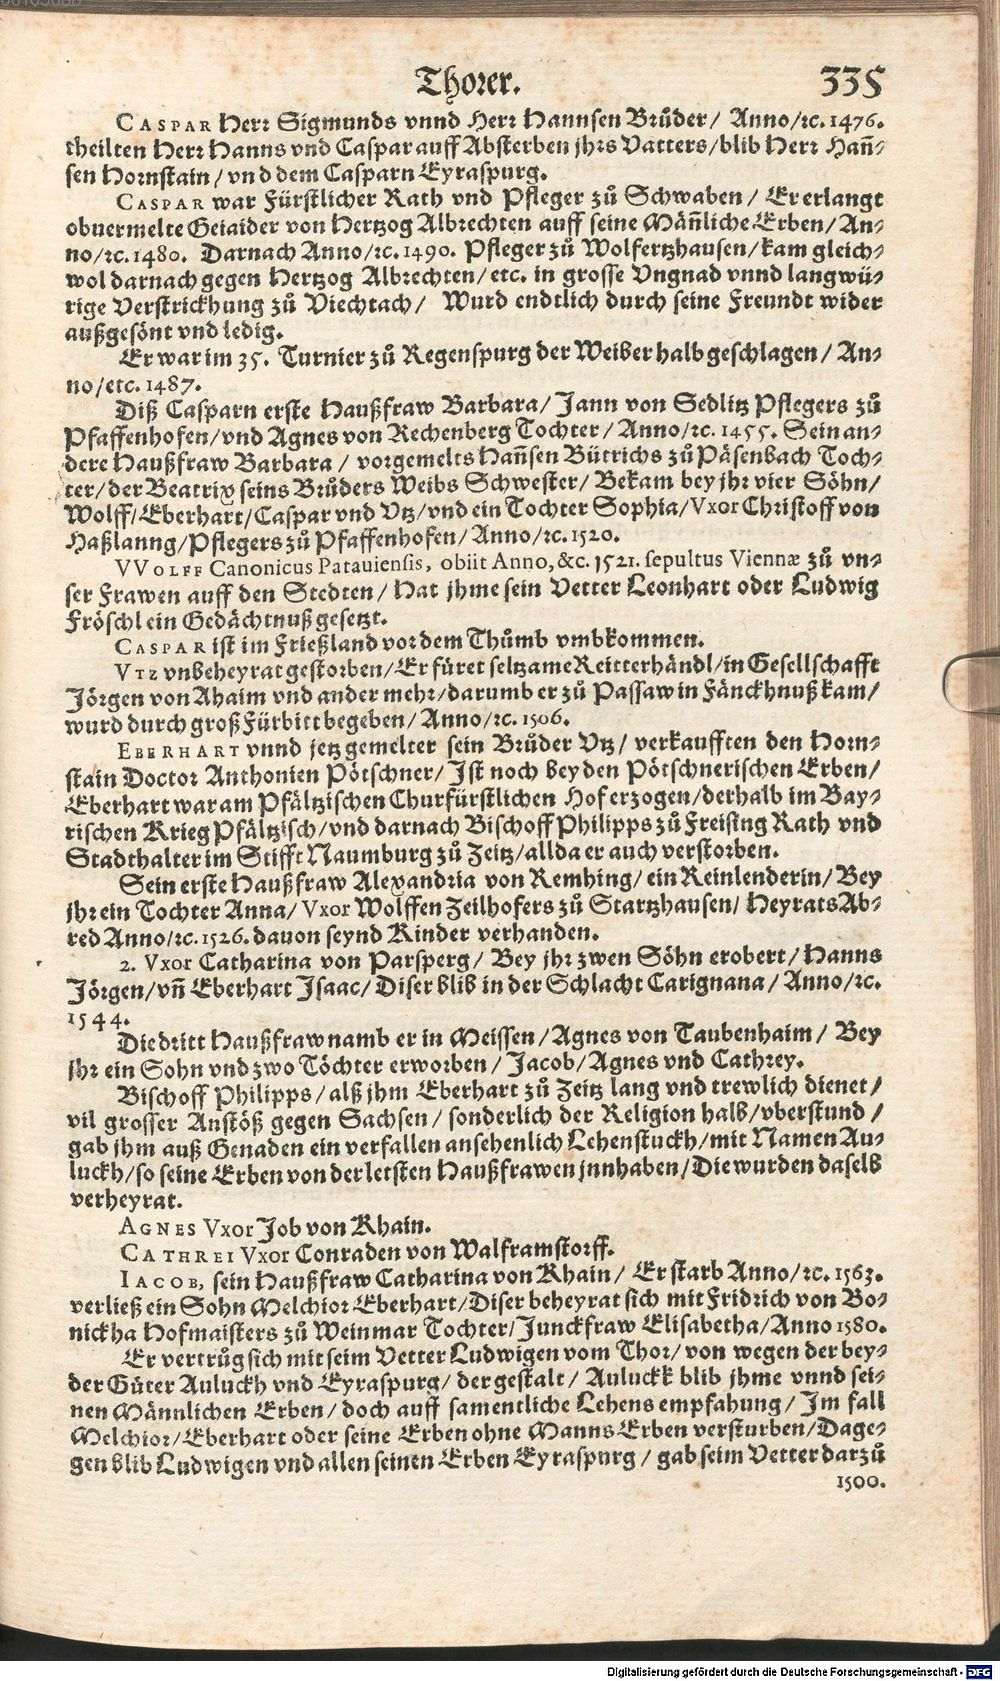 Thorer. 335
CASPAR Herr Sigmunds vnnd Herr Hannsen Brůder/ Anno/ꝛc. 1476.
theilten Herr Hanns vnd Caspar auff Absterben jhrs Vatters/blib Herr Hañ-
sen Hornstain/vnd dem Casparn Eyraspurg.
CASPAR war Fürstlicher Rath vnd Pfleger zů Schwaben/ Er erlangt
obuermelte Geiaider von Hertzog Albrechten auff seine Mäñliche Erben/An-
no/ꝛc. 1480. Darnach Anno/ꝛc. 1490. Pfleger zů Wolfertzhausen/kam gleich-
wol darnach gegen Hertzog Albrechten/etc. in grosse Vngnad vnnd langwü-
rige Verstrickhung zů Viechtach/ Wurd endtlich durch seine Freundt wider
außgesönt vnd ledig.
Er war im 35. Turnier zů Regenspurg der Weiber halb geschlagen/ An-
no/etc. 1487.
Diß Casparn erste Haußfraw Barbara/ Jann von Sedlitz Pflegers zů
Pfaffenhofen/vnd Agnes von Rechenberg Tochter/ Anno/ꝛc. 1455. Sein an-
dere Haußfraw Barbara/ vorgemelts Hañsen Bütrichs zů Päsenbach Toch-
ter/der Beatrix seins Brůders Weibs Schwester/ Bekam bey jhr vier Söhn/
Wolff/Eberhart/Caspar vnd Vtz/vnd ein Tochter Sophia/Vxor Christoff von
Haßlanng/Pflegers zů Pfaffenhofen/ Anno/ꝛc. 1520.
VVOLFF Canonicus Patauiensis, obiit Anno, &c. 1521. sepultus Viennæ zů vn-
ser Frawen auff den Stedten/ Hat jhme sein Vetter Leonhart oder Ludwig
Fröschl ein Gedächtnuß gesetzt.
CASPAR ist im Frießland vor dem Thůmb vmbkommen.
VTZ vnbeheyrat gestorben/Er füret seltzame Reitterhändl/in Gesellschafft
Jörgen von Ahaim vnd ander mehr/darumb er zů Passaw in Fänckhnuß kam/
wurd durch groß Fürbitt begeben/ Anno/ꝛc. 1506.
EBERHART vnnd jetzgemelter sein Brůder Vtz/ verkaufften den Horn-
stain Doctor Anthonien Pötschner/ Ist noch bey den Pötschnerischen Erben/
Eberhart war am Pfältzischen Churfürstlichen Hof erzogen/derhalb im Bay-
rischen Krieg Pfältzisch/vnd darnach Bischoff Philipps zů Freising Rath vnd
Stadthalter im Stifft Naumburg zů Zeitz/allda er auch verstorben.
Sein erste Haußfraw Alexandria von Remhing/ein Reinlenderin/Bey
jhr ein Tochter Anna/Vxor Wolffen Zeilhofers zů Startzhausen/ Heyrats Ab-
red Anno/ꝛc. 1526. dauon seynd Kinder verhanden.
2. Vxor Catharina von Parsperg/ Bey jhr zwen Söhn erobert/Hanns
Jörgen/vñ Eberhart Isaac/ Diser blib in der Schlacht Carignana/ Anno/ꝛc.
1544.
Die dritt Haußfraw namb er in Meissen/Agnes von Taubenhaim/ Bey
jhr ein Sohn vnd zwo Töchter erworben/ Jacob/Agnes vnd Cathrey.
Bischoff Philipps/alß jhm Eberhart zů Zeitz lang vnd trewlich dienet/
vil grosser Anstöß gegen Sachsen/ sonderlich der Religion halb/vberstund/
gab jhm auß Genaden ein verfallen ansehenlich Lehenstuckh/mit Namen Au-
luckh/so seine Erben von der letsten Haußfrawen jnnhaben/Die wurden daselb
verheyrat.
AGNES Vxor Job von Rhain.
CATHREI Vxor Conraden von Walframstorff.
IACOB, sein Haußfraw Catharina von Rhain/ Er starb Anno/ꝛc. 1563.
verließ ein Sohn Melchior Eberhart/Diser beheyrat sich mit Fridrich von Bo-
nickha Hofmaisters zů Weinmar Tochter/Junckfraw Elisabetha/Anno 1580.
Er vertrůg sich mit seim Vetter Ludwigen vom Thor/von wegen der bey-
der Güter Auluckh vnd Eyraspurg/dergestalt/ Auluckk blib jhme vnnd sei-
nen Männlichen Erben/ doch auff samentliche Lehens empfahung/ Im fall
Melchior/Eberhart oder seine Erben ohne Manns Erben versturben/Dage-
gen blib Ludwigen vnd allen seinen Erben Eyraspurg/gab seim Vetter darzů
1500.
Digitalisierung gefördert durch die Deutsche Forschungsgemeinschaft - DFG